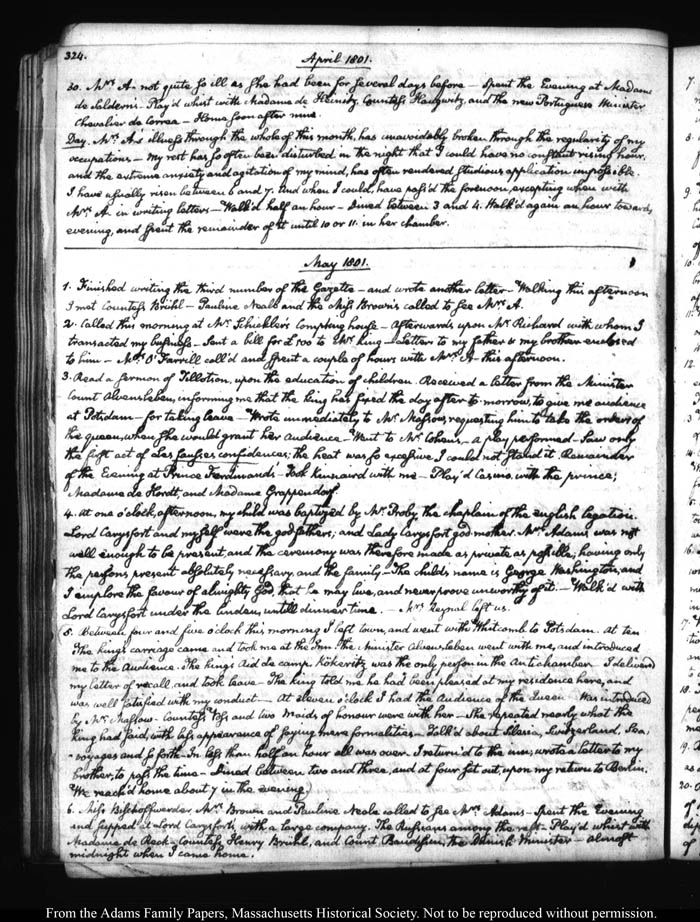 324.
April 1801.
30. Mrs A- not quite so ill as she had been for several days before - Spent the Evening at Madame
de Saldern's - Play'd whist with Madame de Heinitz, Countess Haugwitz, and the new Portuguese Minister
Chevalier de Correa - Home soon after nine.
Day. Mrs A's illness through the whole of this month, has unavoidably broken through the regularity of my
occupations - My rest has so often been disturbed in the night that I could have no constant rising hour.
and the extreme anxiety and agitation of my mind, has often rendered studious application impossible.
I have usually risen between 6 and 7. And when I could, have pass'd the forenoon, excepting when with
Mrs A. in writing letters - Walk'd half an hour - Dined between 3 and 4. Walk'd again an hour towards
evening, and spent the remainder of it until 10 or 11. in her chamber.
May 1801.
1. Finished writing the third number of the Gazette - and wrote another letter - Walking this afternoon
I met Countess Brühl - Pauline Neale and the Miss Brown's called to see Mrs A.
2. Called this morning at Mr Schickler's Compting house - Afterwards upon Mr Richard with whom I
transacted my business - Sent a bill for £100 to Mr King - Letters to my father & my brother enclosed
to him - Mrs O'Farrill call'd and spent a couple of hours with Mrs A - this afternoon.
3. Read a sermon of Tillotson, upon the education of children. Received a letter from the Minister
Count Alvensleben, informing me that the king has fixed the day after to-morrow, to give me audience
at Potsdam - for taking leave - Wrote immediately to Mr Massow, requesting him to take the orders of
the queen, when she would grant her Audience - Went to Mr Cohen's - a play performed - Saw only
the first act of Les fausses confidences; the heat was so excessive I could not stand it. Remainder
of the Evening at Prince Ferdinand's - Took Kinnaird with me - Play'd Casino, with the prince;
Madame de Hordt, and Madame Grappendorf.
4. At one o'clock, afternoon, my child was baptized by Mr Proby the chaplain of the english legation.
Lord Carysfort and myself were the godfathers; and Lady Carysfort god-mother. Mrs Adams was not
well enough to be present, and the ceremony was therefore made as private as possible; having only
the persons present absolutely necessary, and the family - The child's name is George Washington, and
I implore the favour of almighty God, that he may live, and never prove unworthy of it. - Walk'd with
Lord Carysfort under the lindens, untill dinner time. - Mrs Reynal left us.
5. Between four and five o'clock this morning I left town, and went with Whitcomb to Potsdam. At ten
the king's carriage came and took me at the Inn. The Minister Alvensleben went with me, and introduced
me to the Audience. The king's Aid de camp Kökeritz was the only person in the Antichamber I delivered
my letter of recall, and took leave - The king told me he had been pleased at my residence here, and
was well satisfied with my conduct - At eleven o'clock I had the Audience of the Queen Was introduced
by Mr Massow - Countess Voss and two Maids of honour were with her - She repeated nearly what the
king had said, with less appearance of saying mere formalities - Talk'd about Silesia, Switzerland, Sea-
-voyages and so forth - In less than half an hour all was over - I return'd to the inn; wrote a letter to my
brother, to pass the time - Dined between two and three, and at four set out, upon my return to Berlin.
We reach'd home about 7 in the evening.
6. Miss Bischoffwerder, Mrs Brown and Pauline Neale called to see Mrs Adams - Spent the Evening
and supped at Lord Carysfort's, with a large company. The Russians among the rest - Play'd whist with
Madame de Reck - Countess Henry Brühl, and Count Baudissin, the Danish Minister - Almost
midnight when I came home.
From the Adams Family Papers, Massachusetts Historical Society. Not to be reproduced without permission.